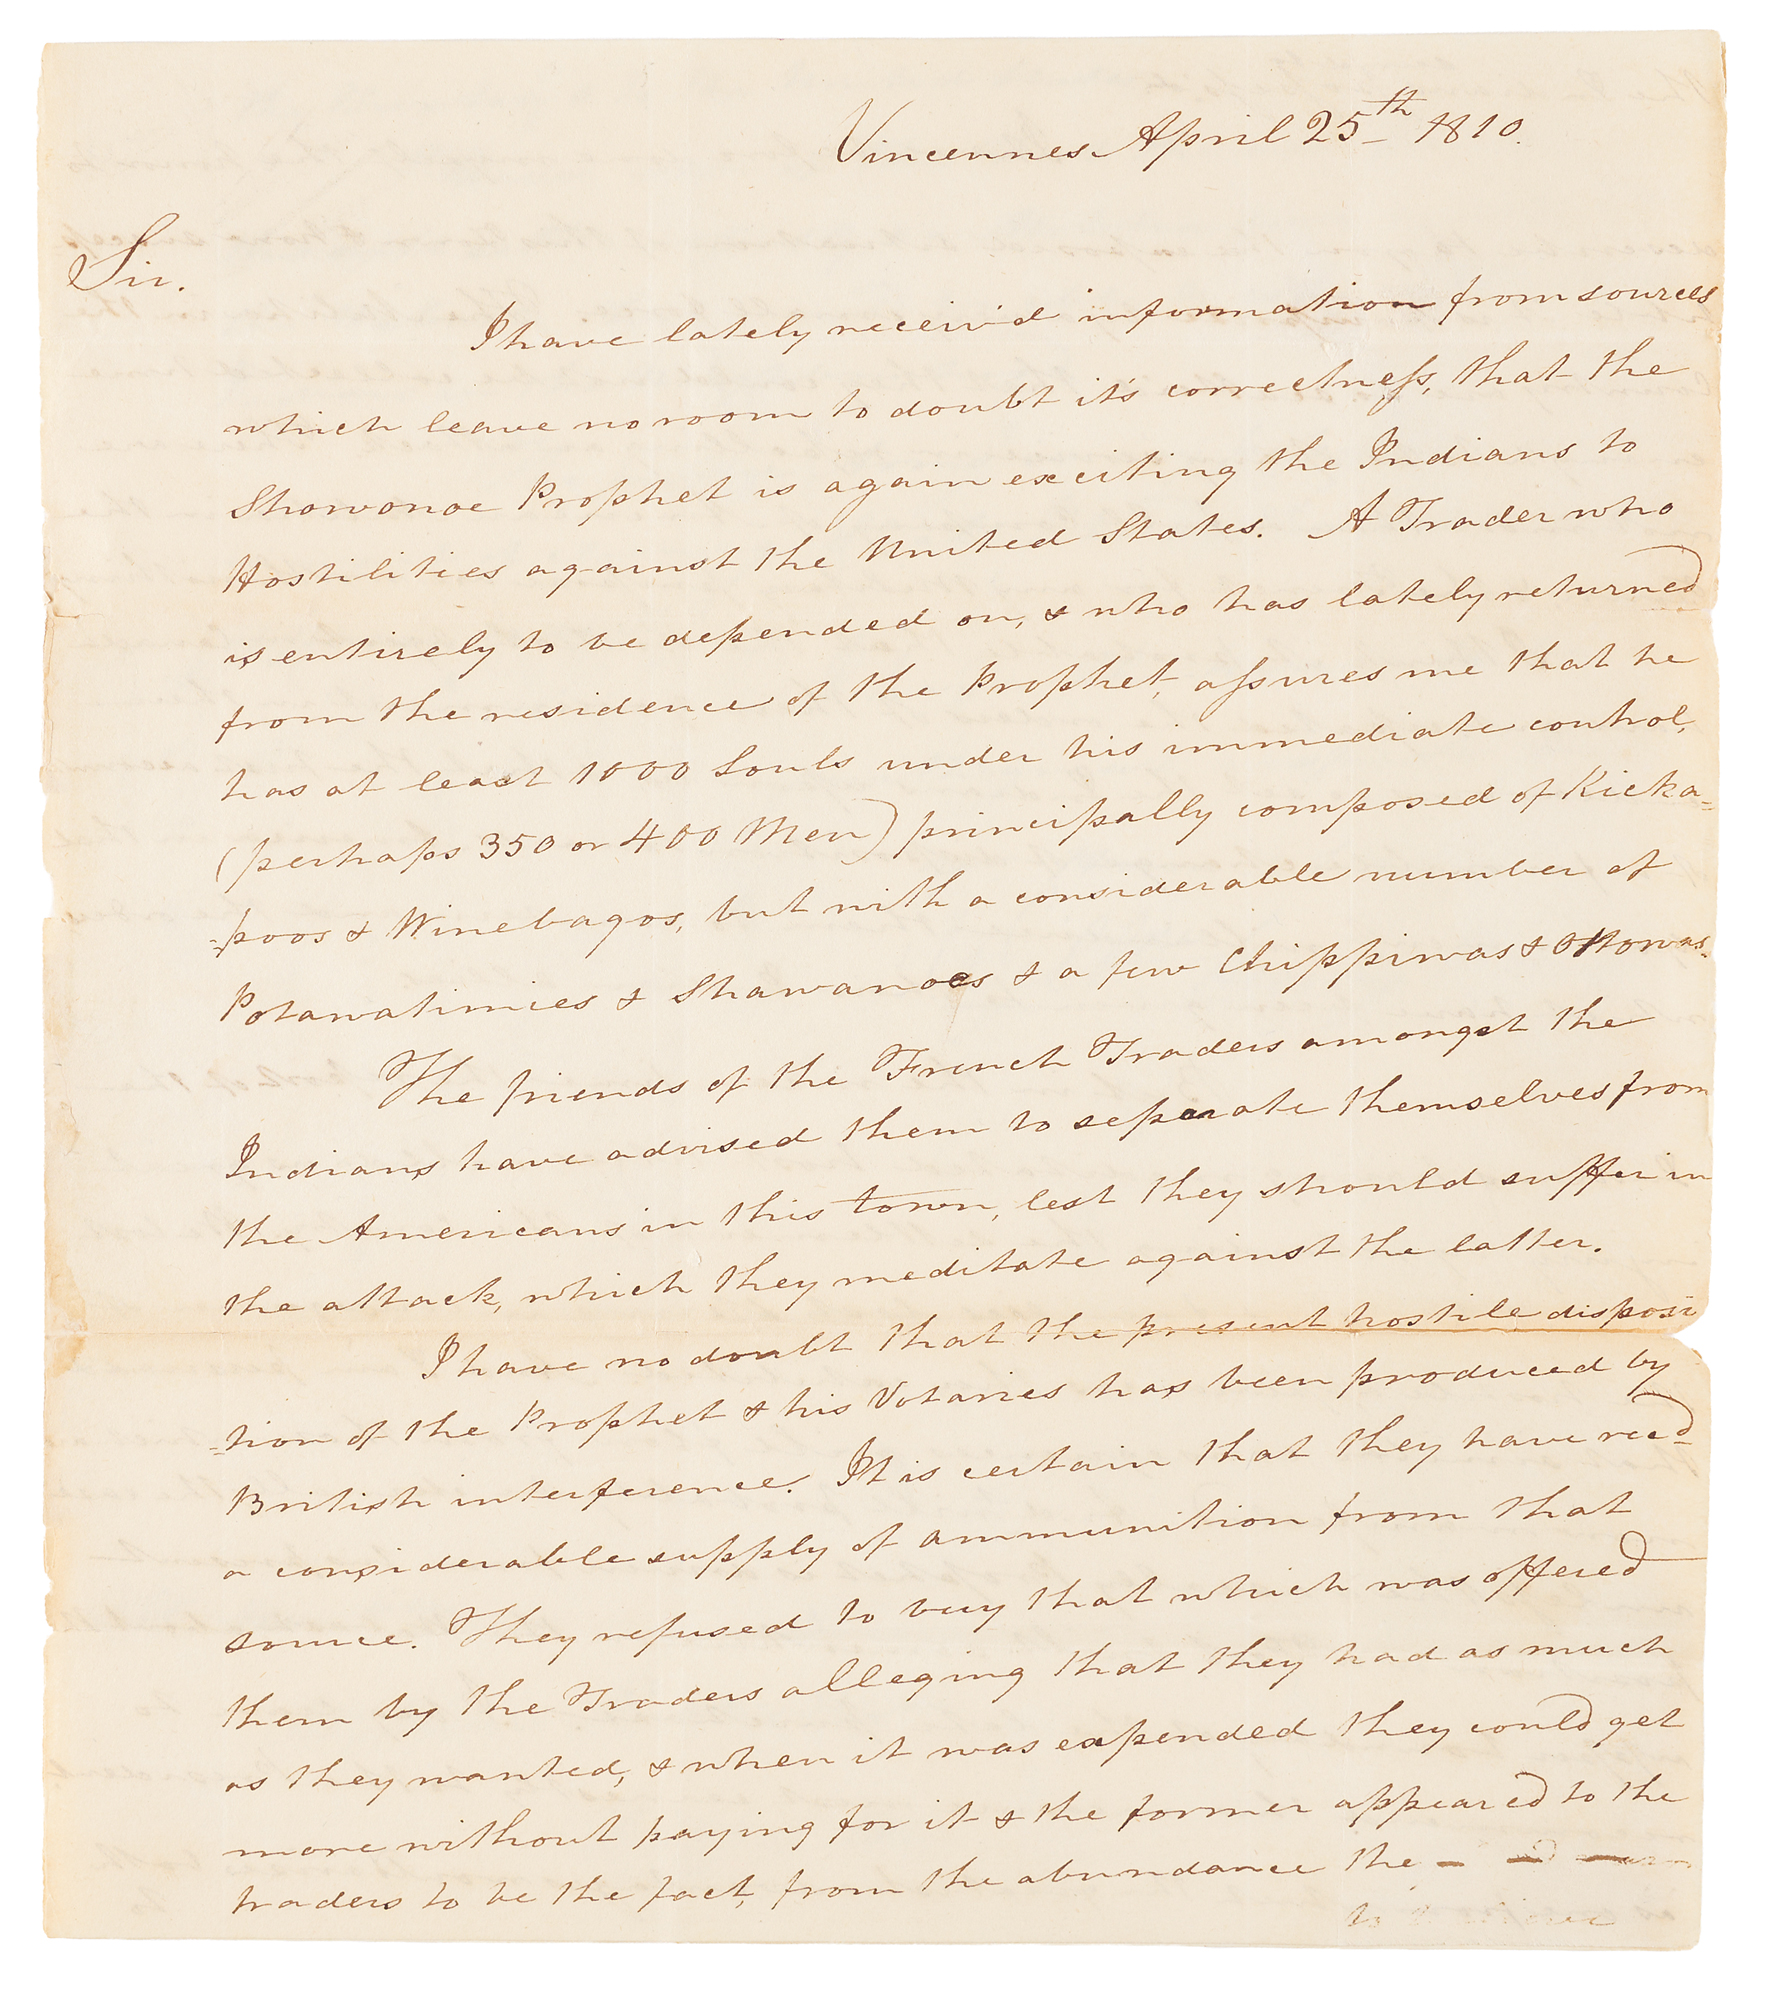 Vincennes April 25th 1810.
Sir.
I have lately receiv'd information from sources
which leave no room to doubt it's correctness, that the
Shawonoe Prophet is again exciting the Indians to
Hostilities against the United States. A Trader who
is entirely to be depended on, & who has lately returned
from the residence of the Prophet, assures me that he
has at least 1000 Souls under his immediate control,
(perhaps 350 or 400 Men) principally composed of Kicka=
=poos & Winebagos, but with a considerable number of
Potawatimies & Shawanoes & a few Chippiwas & Ottowas.
The friends of the French Traders amongst the
Indians have advised them to separate themselves from
the Americans in this town, lest they should suffer in
the attack, which they meditate against the latter.
I have no doubt that the present hostile disposi
=tion of the Prophet & his Votaries has been produced by
British interference. It is certain that they have recd
a considerable supply of ammunition from that
source. They refused to buy that which was offered
them by the Traders alleging that they had as much
as they wanted, & when it was expended they could get
more without paying for it & the former appeared to the
traders to be the fact, from the abundance the
to